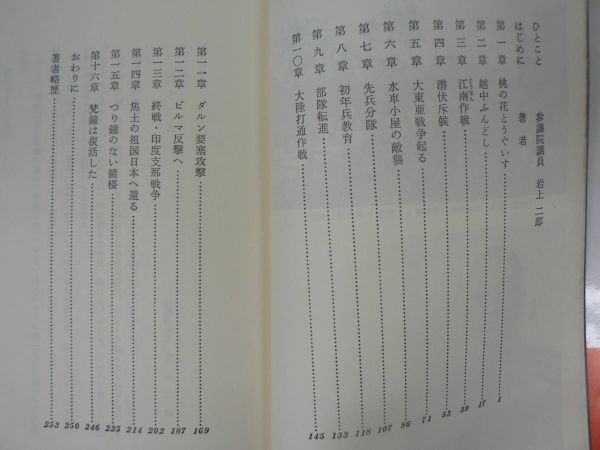 ひとこと 参議院議員 岩上二郎
はじめに 著者
第一章 桃の花とうぐいす 1
第二章 越中ふんどし 17
第三章 江南作戦 39
第四章 潜伏斥候 53
第五章 大東亜戦争起る 71
第六章 水車小屋の敵襲 86
第七章 尖兵分隊 107
第八章 初年兵教育 118
第九章 部隊転進 133
第一〇章 大陸打通作戦 145
第一一章 ダルン要塞攻撃 169
第一二章 ビルマ反撃へ 187
第一三章 終戦・印度支那戦争 202
第一四章 焦土の祖国日本へ還る 214
第一五章 つり鐘のない鐘楼 225
第十六章 梵鐘は復活した 246
おわりに 250
著者略歴 253